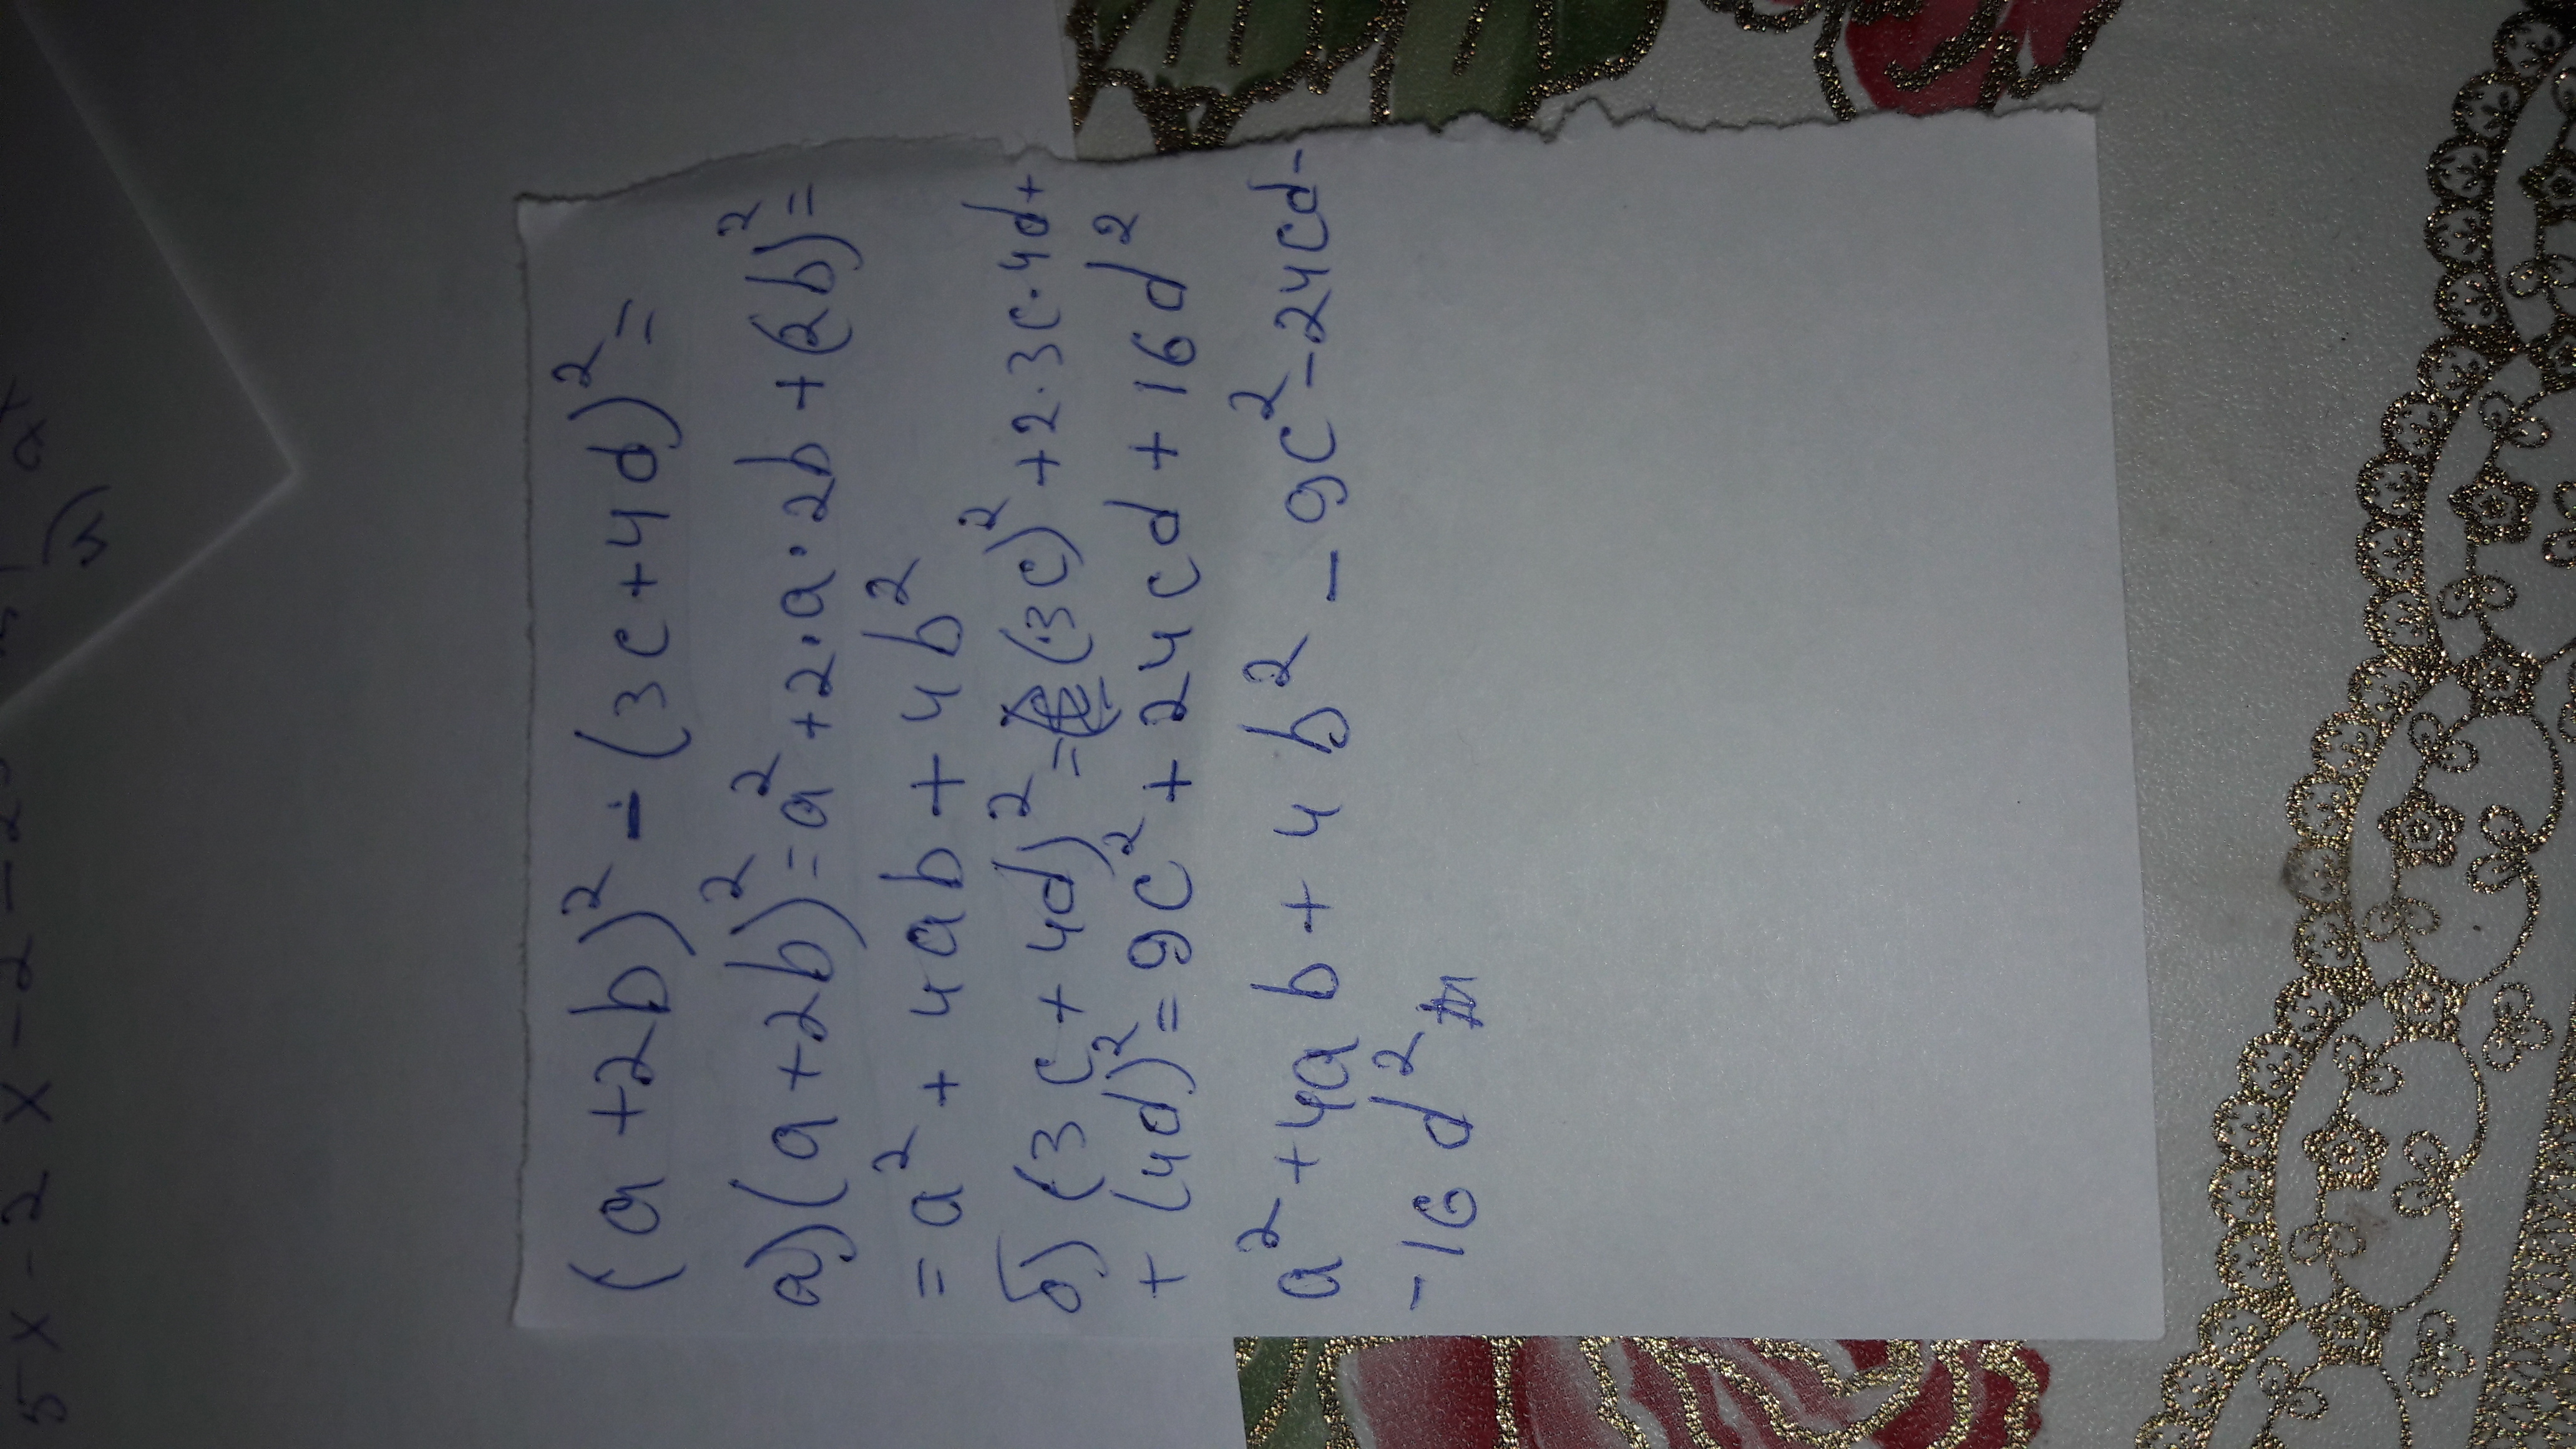 (a + 2b)² - (3c + 4d)² =
а) (a + 2b)² = a² + 2·a·2b + (2b)² =
= a² + 4ab + 4b²
б) (3c + 4d)² = (3c)² + 2·3c·4d +
+ (4d)² = 9c² + 24cd + 16d²
a² + 4ab + 4b² - 9c² - 24cd -
- 16d²
5x - 2x - 2 - 2